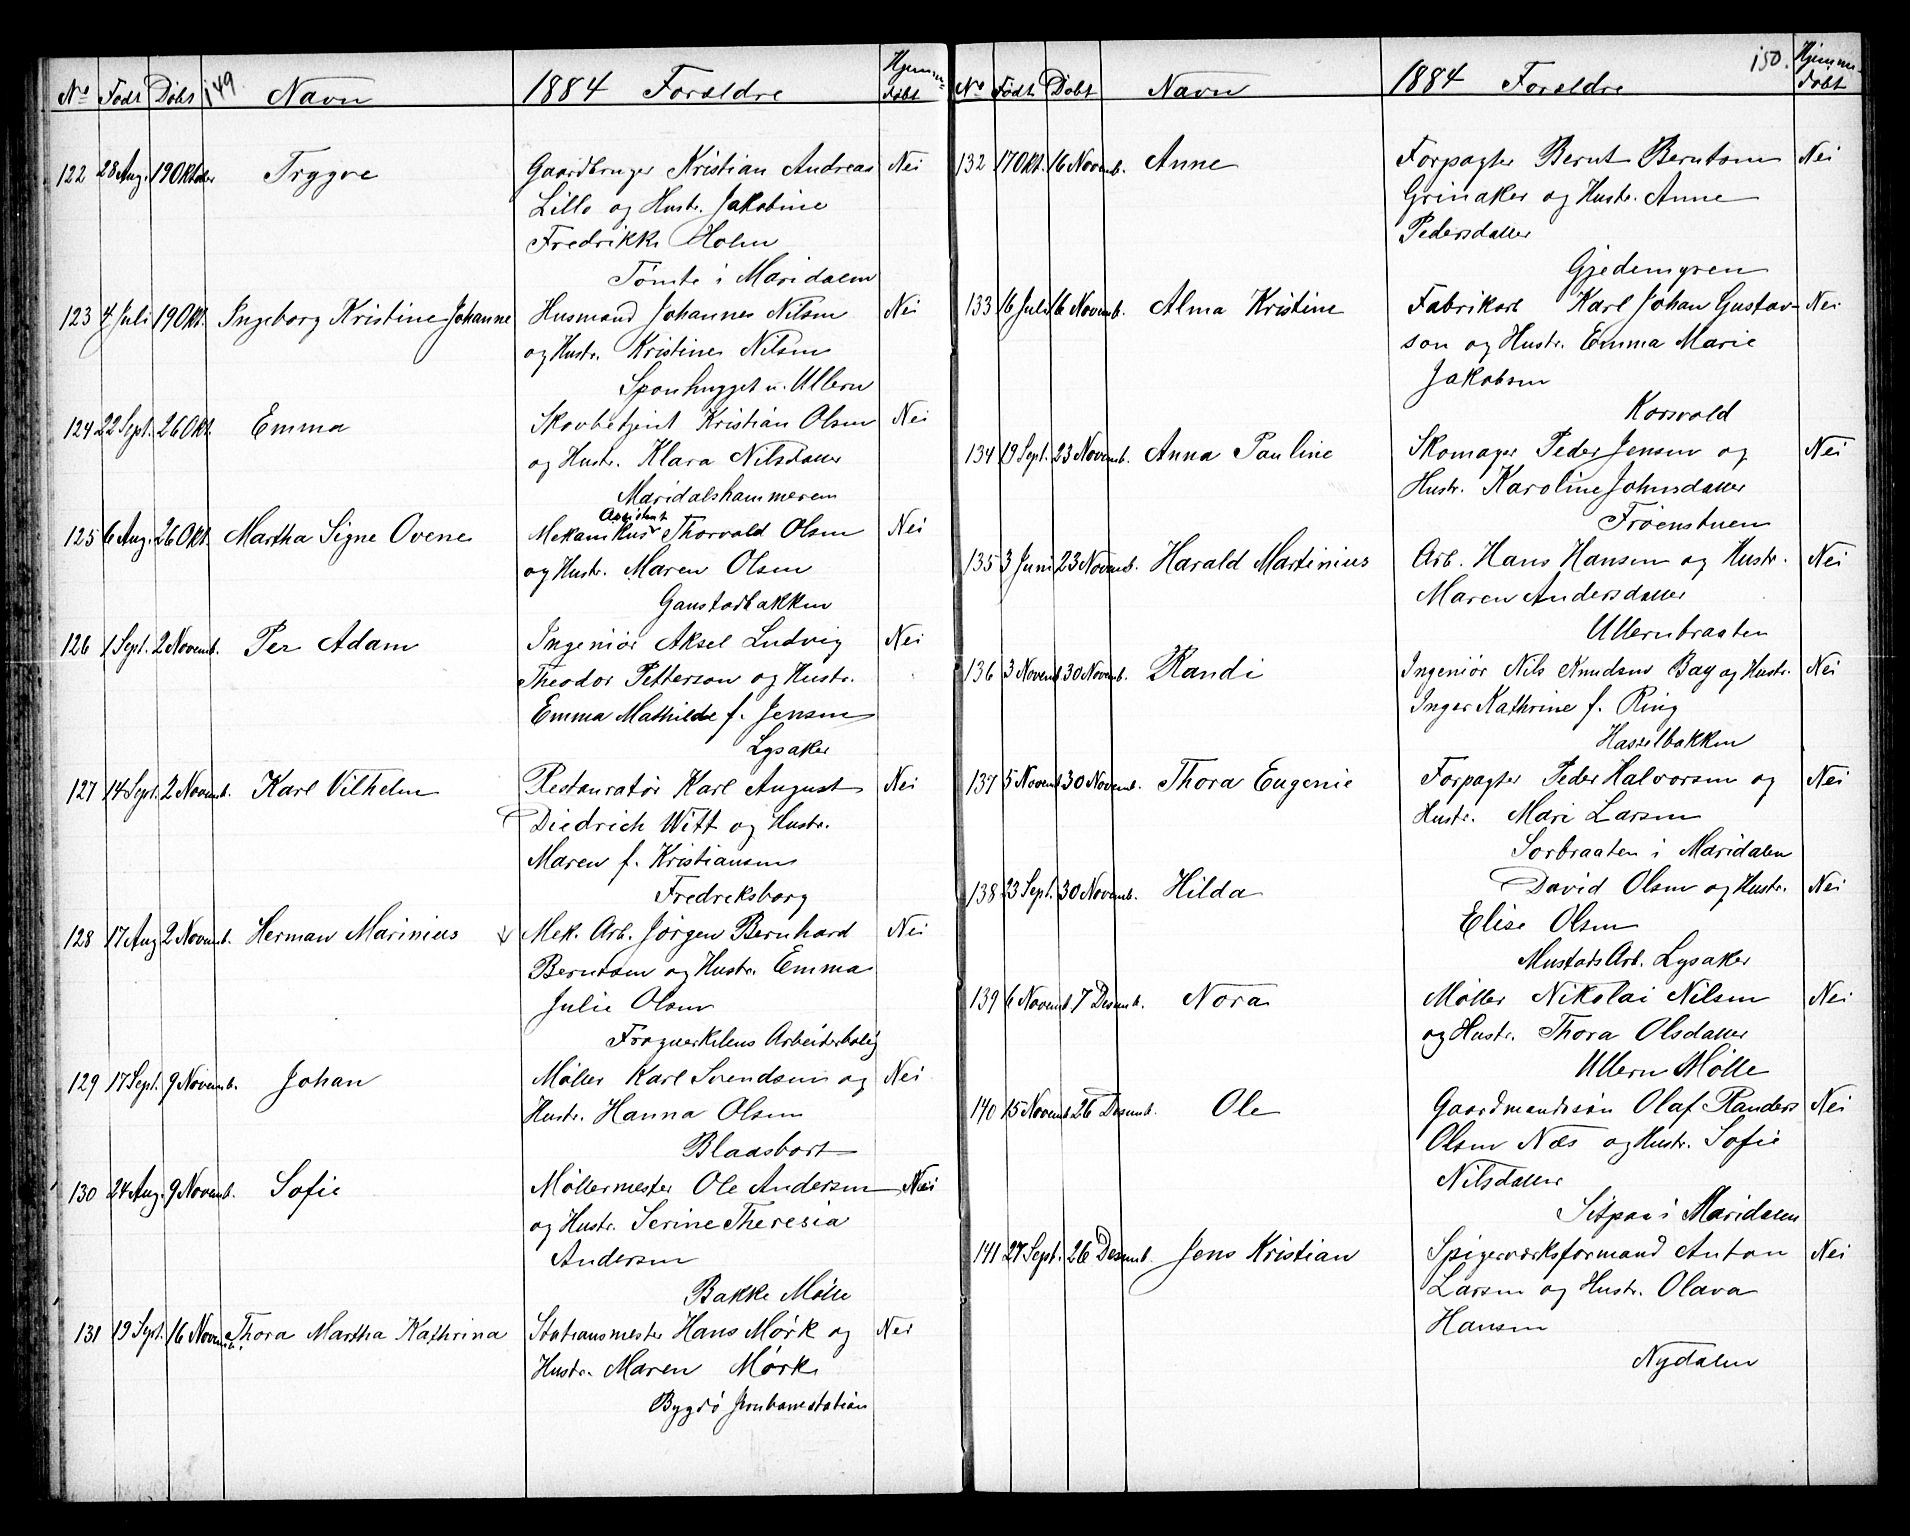 149.
No Født Døbt Navn 1884 Foræld­re Hjemme-
døbt
122 28 Aug. 19 Oktober Trygve Gaardbruger Kristian Andreas Nei
Lillo og Hustr. Jakobine
Fredrikke Holm
Tømte i Maridalen
123 4 Juli 19 Okt. Ingeborg Kristine Johanne Husmand Johannes Nilsen Nei
og Hustr. Kristine Nilsen
Sponhugget u. Ullern
124 22 Sept. 26 Okt. Emma Skovbetjent Kristian Olsen Nei
og Hustr. Klara Nilsdatter
Maridalshammeren
Assistent
125 6 Aug. 26 Okt. Martha Signe Ovene Mekanikus Thorvald Olsen Nei
og Hustr. Maren Olsen
Gaustadbakken
126 1 Sept. 2 Novemb. Per Adam Ingeniør Aksel Ludvig Nei
Theodor Petterson og Hustr.
Emma Mathilde f. Jensen
Lysaker
127 14 Sept. 2 Novemb. Karl Vilhelm Restauratør Karl August Nei
Diedrich Witt og Hustr.
Maren f. Kristiansen
Fredriksborg
128 17 Aug 2 Novemb. Herman Marinius Mek. Arb. Jørgen Bernhard Nei
Berntsen og Hustr. Emma
Julie Olsen
Frognerkilens Arbeiderbolig
129 17 Sept. 9 Novemb. Johan Møller Karl Svendsen og Nei
Hustr. Hanna Olsen
Blaasbort
130 24 Aug. 9 Novemb. Sofie Møllermester Ole Andersen Nei
og Hustr. Serine Theresia
Andersen
Bakke Mølle
131 19 Sept. 16 Novemb. Thora Martha Kathrina Stationsmester Hans Mørk og Nei
Hustr. Maren Mørk
Bygdø Jernbanestation
150.
No Født Døbt Navn 1884 Forældre Hjemme-
døbt
132 17 Okt. 16 Novemb. Anne Forpagter Bernt Berntsen Nei
Grinaker og Hustr. Anne
Pedersdatter
Gjedemyren
133 16 Juli 16 Novemb. Alma Kristine Fabrikarb Karl Johan Gustav- Nei
son og Hustr. Emma Marie
Jakobsen
Korsvold
134 19 Sept. 23 Novemb. Anna Pauline Skomager Peder Jensen og Nei
Hustr. Karoline Johnsdatter
Frøenstuen
135 3 Juni 23 Novemb. Harald Martinius Arb. Hans Hansen og Hustr. Nei
Maren Andersdatter
Ullernbraaten
136 3 Novemb 30 Novemb. Randi Ingeniør Nils Knudsen Bay og Hustr. Nei
Inger Kathrine f. Ring
Hasselbakken
137 5 Novemb 30 Novemb. Thora Eugenie Forpagter Peder Halvorsen og Nei
Hustr. Mari Larsen
Sørbraaten i Maridalen
138 23 Sept. 30 Novemb. Hilda David Olsen og Hustr. Nei
Elise Olsen
Mustads Arb. Lysaker
139 6 Novemb 7 Desemb. Nora Møller Nikolai Nilsen Nei
og Hustr. Thora Olsdatter
Ullern Mølle
140 15 Novemb 26 Desemb. Ole Gaardmandssøn Olaf Randers Nei
Olsen Næs og Hustr. Sofie
Nilsdatter
i Maridalen
141 27 Sept. 26 Desemb. Jens Kristian Spigerværksformand Anton Nei
Larsen og Hustr. Olava
Hansen
Nydalen